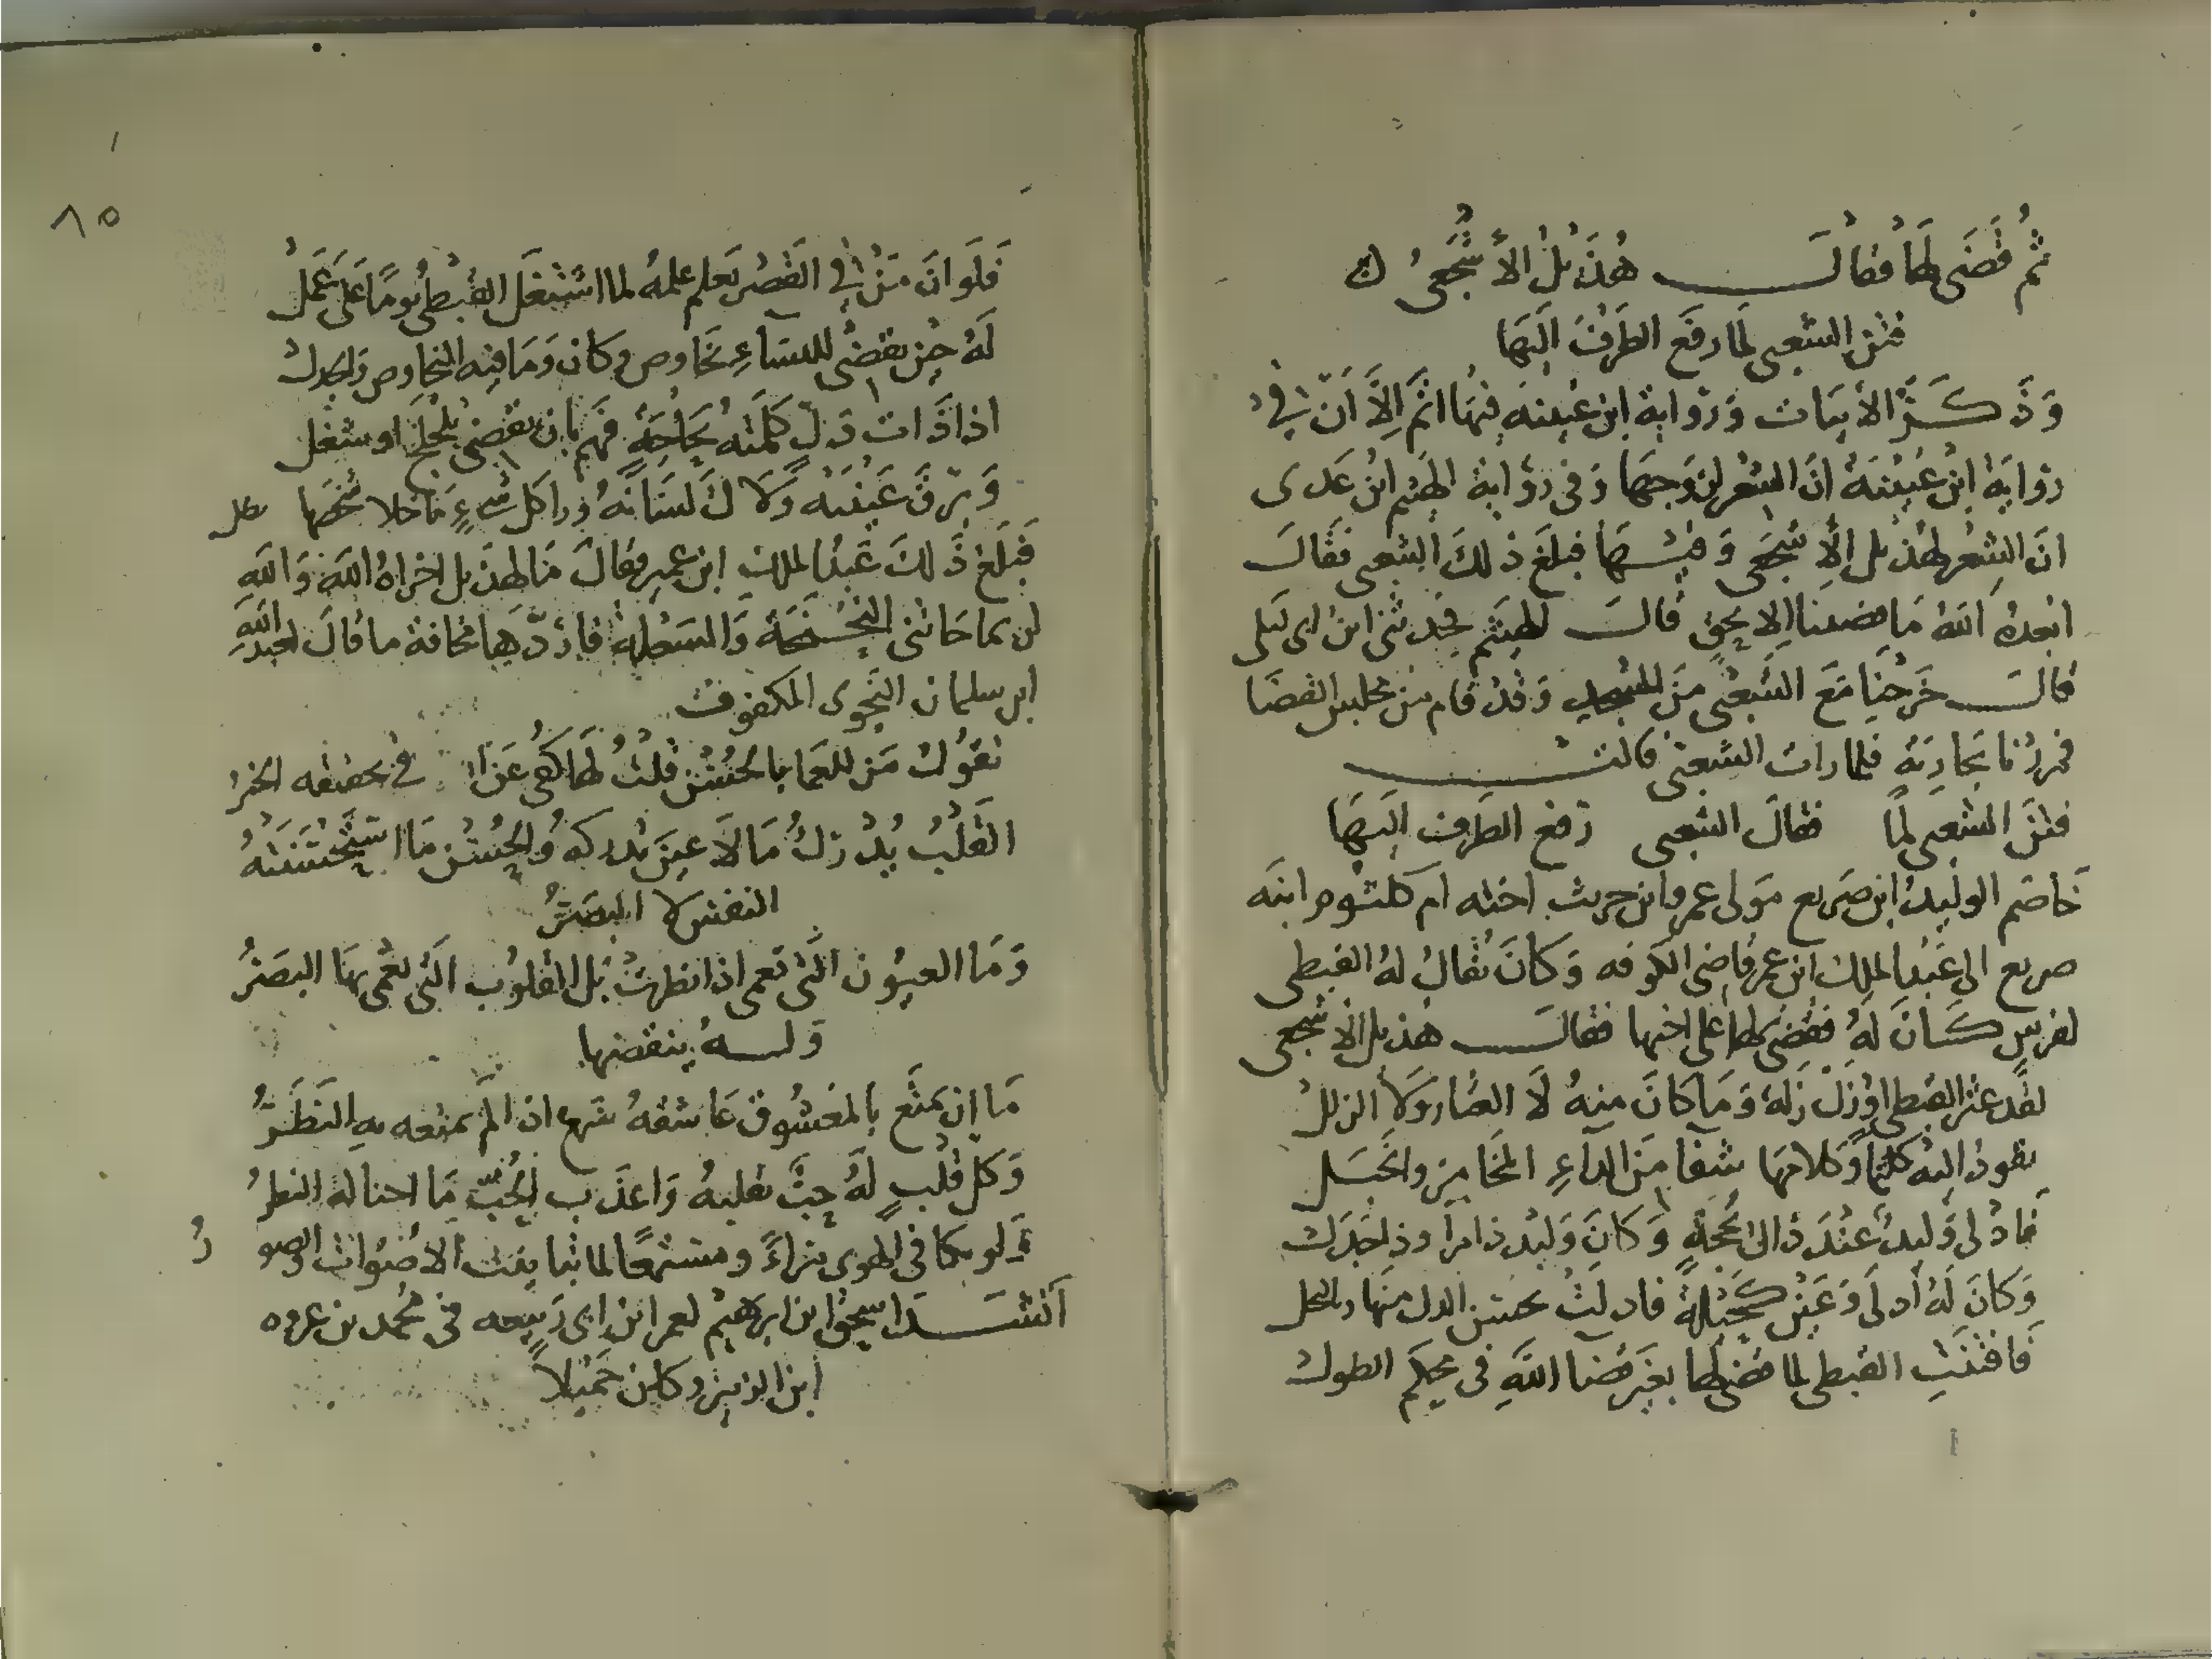 ثُم قَضَى لهَا فقالَ هُذَيل الأشجعى
فتن الشعبى لمَا رفَعَ الطَرفَ الَيهَا
وَذَكَرَ الأبيَات وَرِوَاية ابن عيينه فيهَا اتم إلاَّ أنّ فى
رِوايَة ابن عُيينَةُ انّ الشعر لزوجها وَفى روَاية الهيثم ابن عَدى
انّ الشِعر لهذيل الأشجَعى وَ فبلَغَ ذلكَ الشعبى فقَالَ
ابْعدهُ اللهُ مَا قضينا الا بحقٍ قالَ الهيثم فحدثنى ابن ابى ليلى
قالَ خَرَجنَا مَعَ الشَعبى مِنَ المسجد وَقد قام من مجلس القضَا
فمررْنا بجَاريَة فلما رات الشعبى قالت
فتنَ الشعبى لمَّا فقالَ الشعبى رَفع الطَرف الَيهَا
خَاصَم الوليد ابن صَريع مَولى عمرو ابن حريث اخته ام كلثوم ابنَه
صريع الى عَبد الملك ابن عمير قاضى الكوفه وَكانَ يُقالُ لهُ القبطى
لفرس كَانَ لهُ فقضى لها على اخيها فقالَ هذيل الأشجعى
لقَد عثر القبطى اوْ زَلّ زَلة وَمَا كانَ مِنهُ لَا العثار وَلاَ الزللْ
يقودُ اليه كلثمًا وَكلامهَا شفا مِنَ الداءِ المخَامر والخبَل
فادْلى وَليدُ عنْدَ ذاك بحُجَةٍ وَكانَ وَليد ذا مرَا وذا جَدَل
وَكانَ لَهُ أدلَى وَعَين كحيلة فادلتْ بحسن الدل منهَا وبالكحل
فَافتنَت القبطى لما قضى لها بغَير قضا اللهِ فى محكم الطول
٨٥
فَلَو انّ مَنْ فى القَصْر يَعلم علمهُ لما استعَمل القبطى يومًا عَلى عَمَلْ
لَهُ حين يقضى للنسَاءِ تخاوص وكان وَمَا فيه التخاوص وَالحول
اذا ذَات دَلّ كلمَته بحَاجةٍ فهم بان يقضى تَنحنح او سعَل
وَبرّق عَينَيه وَلاكَ لسَانهُ ورا كل شىءٍ مَا خلا شخصها
فَبلغ ذَلكَ عَبد الملك ابن عمير فقالَ مَا لهذيل اخزاهُ اللهَ وَاللهِ
لربما جَاءتنى النَحنَحة وَالسَعلة فاردّها مخافة ما قال
ابن سليمان النَحوى المكفوف
تقول مَن للعما بالحُسْن قُلتُ لهَا كفى عَن الله فى تحقيقه الخبرُ
القَلْبُ يُدْركُ مَا لَا عينَ تدركه وَالحُسْن مَا استَحْسَنَتهُ
النفس لا البصَرُ
وَمَا العيون الَّتى تعمى اذا نظرت بَل القلوب الَّتى يَعْمى بهَا البصَرُ
وَلهُ ينقضها
مَا ان تمتّع بالمعشُوق عَاشقهُ شىء اذا لم يمتعه به النَظَرُ
وَكلّ قَلْبٍ لَهُ حبَّ يقلبهُ وَاعذَب الحُبّ مَا احتاله النظرُ
لو كا فى الهوى مراءً ومستمعًا لما تبايَنت الاصْوَات والصورُ
اَنشَدَ اسحق ابن ابرهيم لعمر ابن ابى رَبيعه فى مُحمد بن عروه
ابن الزبير وكان جَميلاً